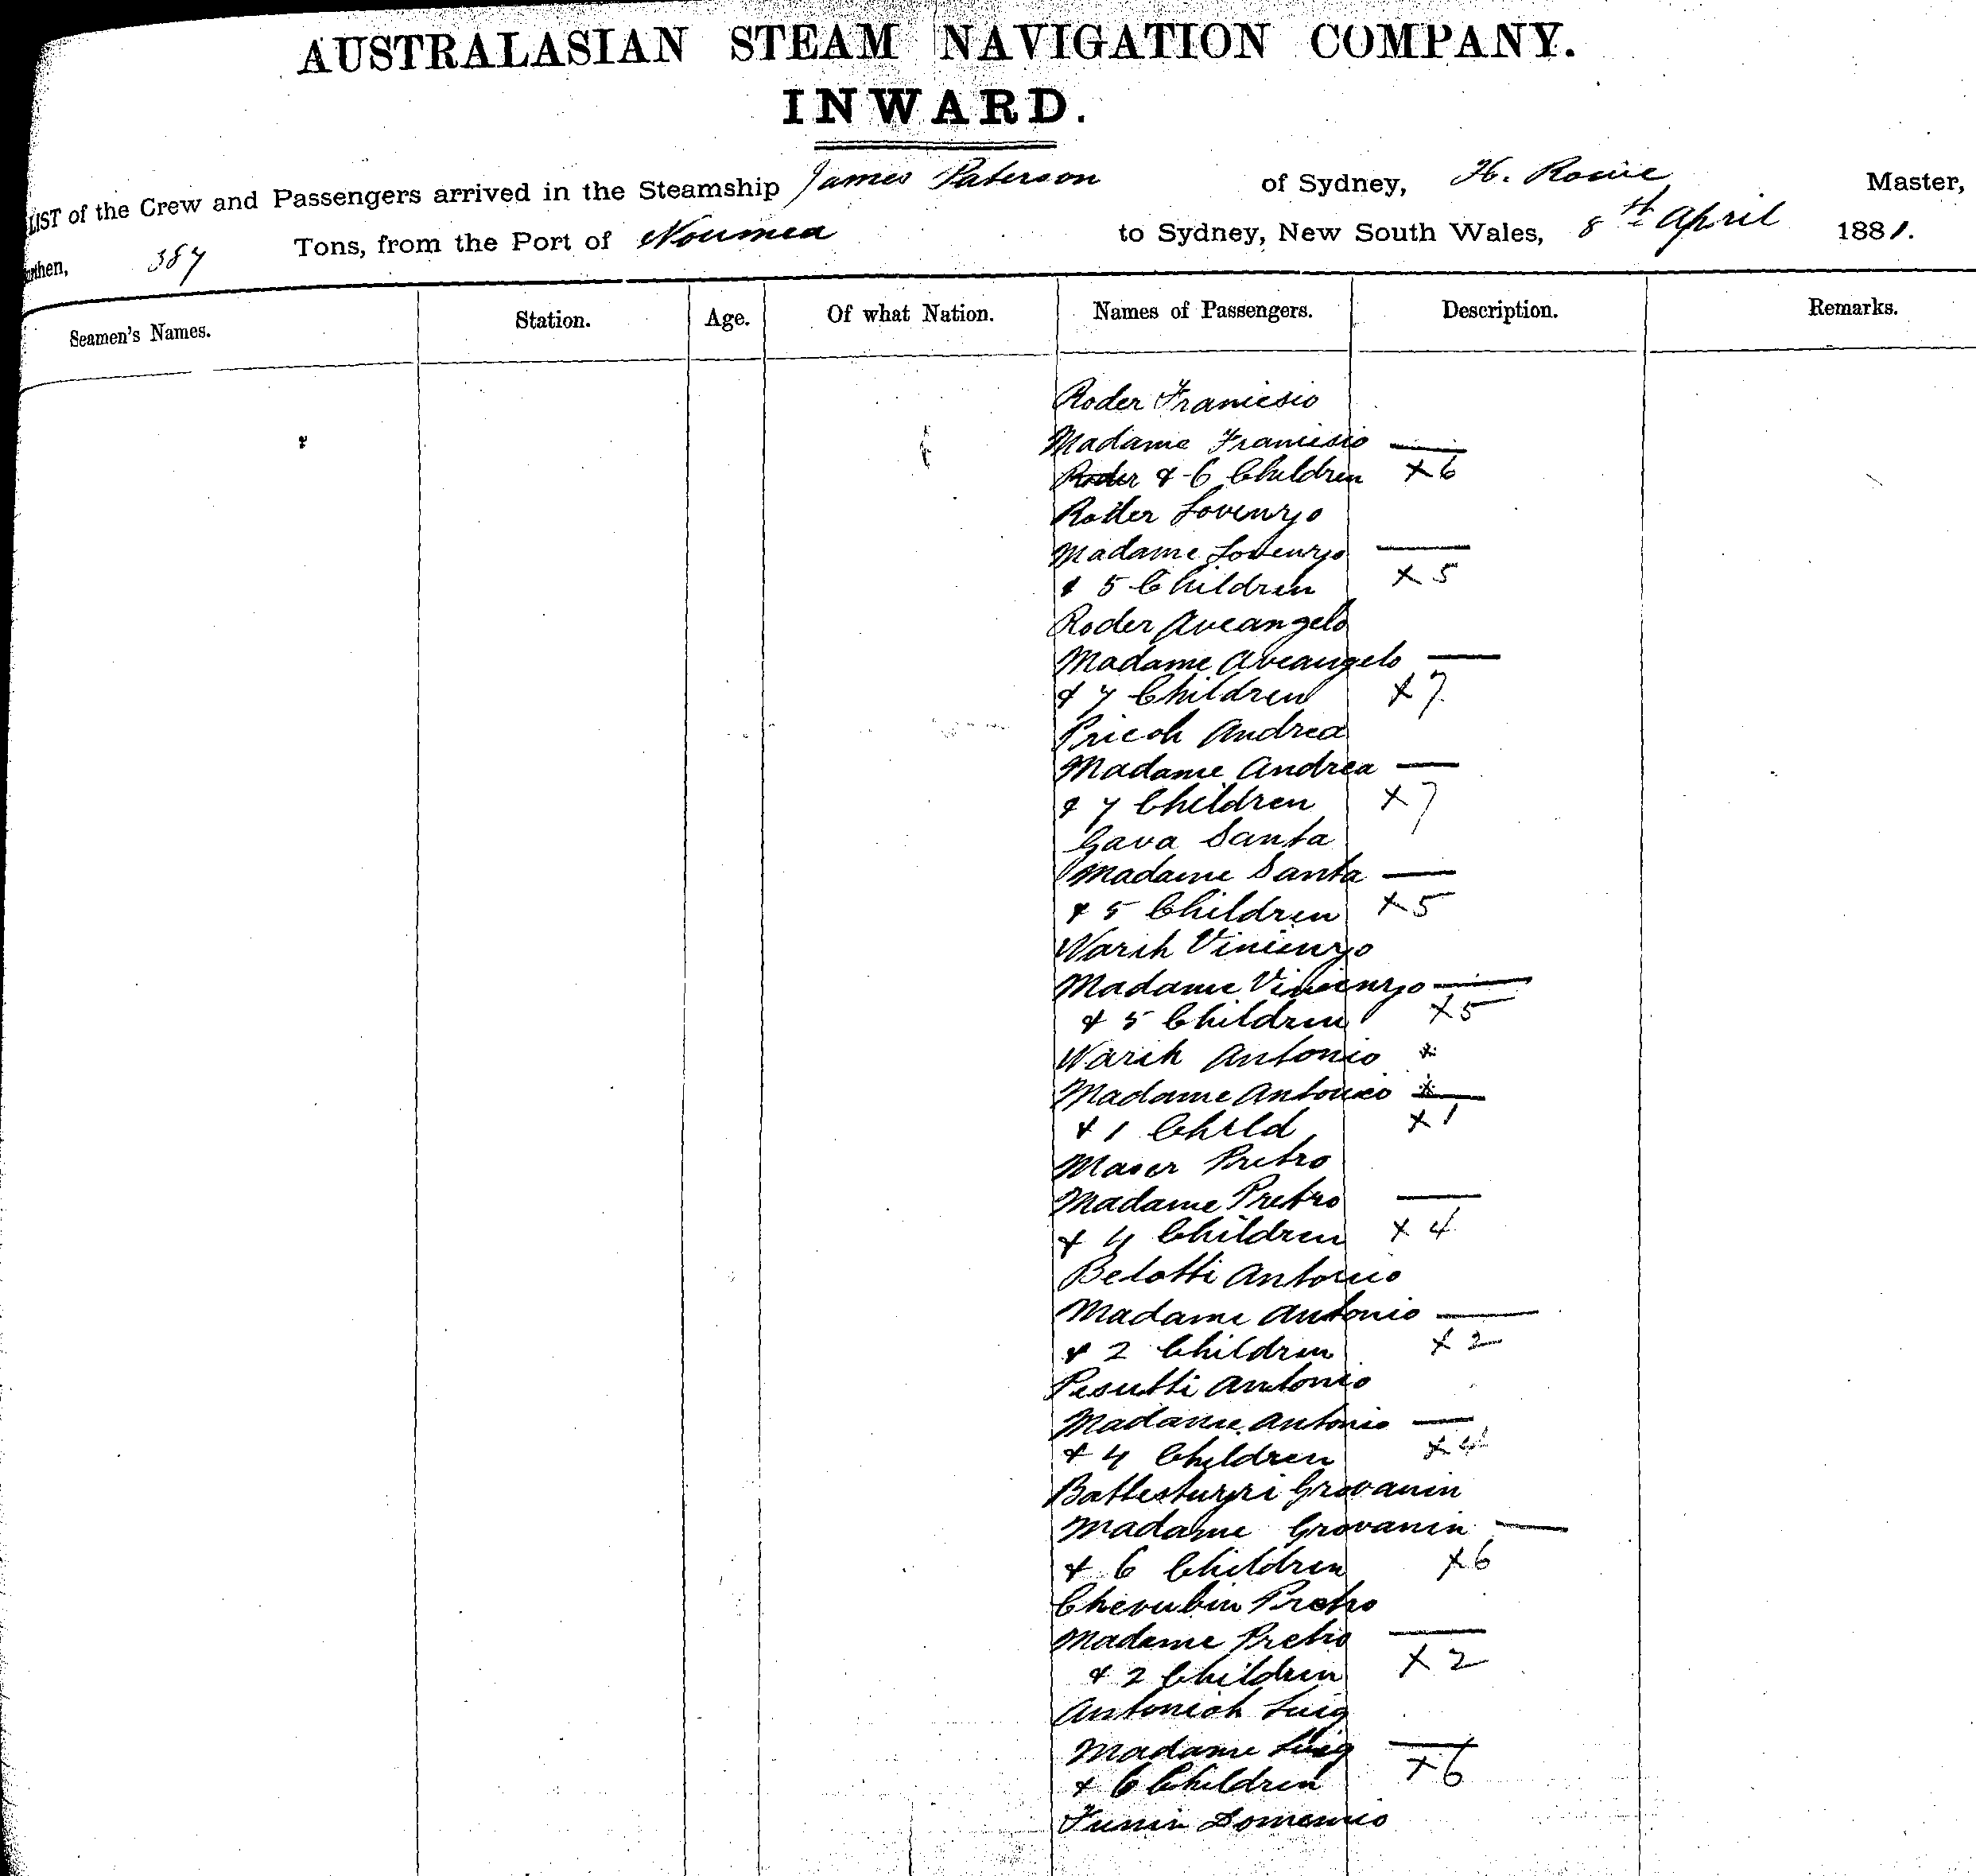 AUSTRALASIAN STEAM NAVIGATION COMPANY.
INWARD.
LIST of the Crew and Passengers arrived in the Steamship James Paterson of Sydney, H. Rowie Master,
387 Tons, from the Port of Noumea to Sydney, New South Wales, 8th April 1881.
Seamen's Names. Station. Age. Of what Nation. Names of Passengers. Description. Remarks.
Roder Francisio
Madame Francisio —
Roder & 6 Children x 6
Roder Lorenzo
Madame Lorenzo —
& 5 Children x 5
Roder Arcangelo
Madame Arcangelo —
& 7 Children x 7
Pricoh Andrea
Madame Andrea —
& 7 Children x 7
Gava Santa
Madame Santa —
& 5 Children x 5
Narih Vinienzo
Madame Vinienzo —
& 5 Children x 5
Narih Antonio x
Madame Antonio x
& 1 Child x 1
Maser Pietro
Madame Pietro —
& 4 Children x 4
Belotti Antonio
Madame Antonio —
& 2 Children x 2
Pesutti Antonio
Madame Antonio —
& 4 Children x 4
Battestuzzi Grovanin
Madame Grovanin —
& 6 Children x 6
Cherubin Pretro
Madame Pretro —
& 2 Children x 2
Antonioh Luig
Madame Luig —
& 6 Children x 6
Domenico